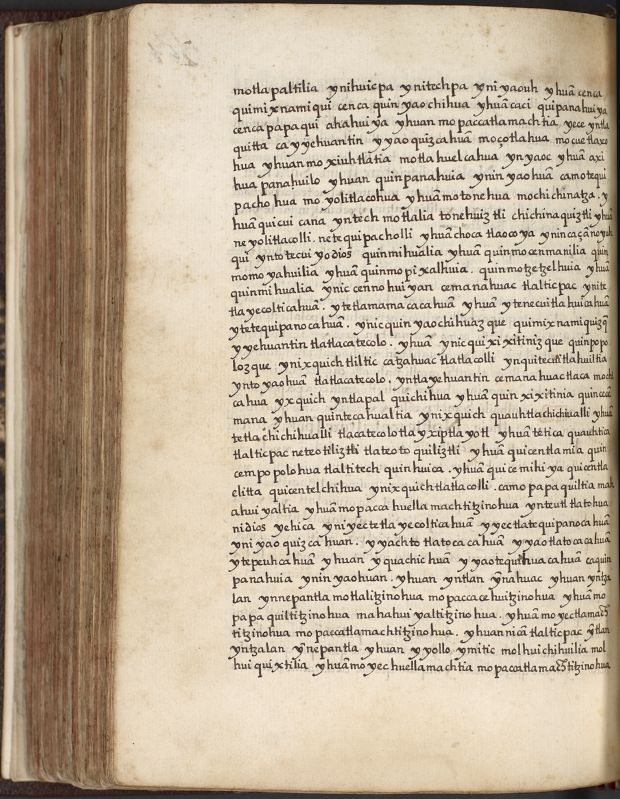 motlapaltilia ynihuicpa ynitechpa yni yaouh yhuā cenca
quimixnamiqui cenca quin yaochihua yhuā caci quipanahuiya
cenca papaqui ahahuiya yhuan mopaccatlamachtia, yece yntla
quitta ca yyehuantin yyaoquizcahuā moçotlahua mocuetlaxo
hua yhuan moxiuhtlatia motlahuelcahua ynyaoc yhuā axi
hua panahuilo yhuan quinpanahuia ynin yaohuā camotequi
pachohua moyolitlacohua yhuāmotonehua mochichinatza. y
huā quicui cana yntech motlalia tonehuiztli chichinaquiztli yhuā
neyolitlacolli. netequipacholli yhuā choca tlaocoya ynincaçānoyuh
qui yntotecuiyo dios quinmihualia yhuā quinmocenmanilia quin
momoyahuilia yhuā quinmopixalhuia. quinmotzetzelhuia yhuā
quinmihualia ynic cennohuiyan cemanahuac tlalticpac ynite
tlayecolticahuā. ytetlamamacacahuā yhuā ytenecuitlahuicahuā
ytetequipanocahuā. ynic quinyaochihuazque quimixnamizq̄
yyehuantin tlatlacatecolo. yhuā ynic quixixitinizque quinpopo
lozque ynixquich tliltic catzahuac tlatlacolli ynquitecuitlahuiltia
ynto yaohuā tlatlacatecolo. yntlayehuantin cemanahuactlaca moch
cahua yxquich yntlapal quichihua yhuā quinxixitinia quincen
mana yhuan quintecahualtia ynixquich quauhtlachichiualli yhuā
tetlachichihualli tlacatecolotlayxiptlayotl yhuā tetica quauhtica
tlalticpac neteotiliztli tlateotoquiliztli yhuā quicentlamia quin
cempopolohua tlaltitech quinhuica. yhuā quicemihiya quicentla
elitta quicentelchihua ynixquich tlatlacolli. camo papaquiltia mah
ahuiyaltia yhuāmopaccahuellamachtitzinohua ynteutl tlatohua
ni dios yehica yniyectetlayecolticahuā yyectlatequipanocahuā
yniyaoquizcahuan. yyachto tlatocacahuā yyaotlatocacahuā
ytepeuhcahuā yhuan yquachichuā yyaotequihuacahuā caquin
panahuia ynin yaohuan. yhuan yntlan ynāhuac yhuan yntza
lan ynnepantla motlalitzinohua mopaccacehuitzinohua yhuā mo
papaquiltitzinohua mahahuiyaltitzinohua. yhuāmoyectlamach
titzinohua mopaccatlamachtitzinohua. yhuan nicā tlalticpac ytlan
yntzalan ynepantla yhuan yyollo, ymitic molhuichihuilia mol
huiquixtilia yhuāmoyechuellamachtia mopaccatlamachtitzinohua